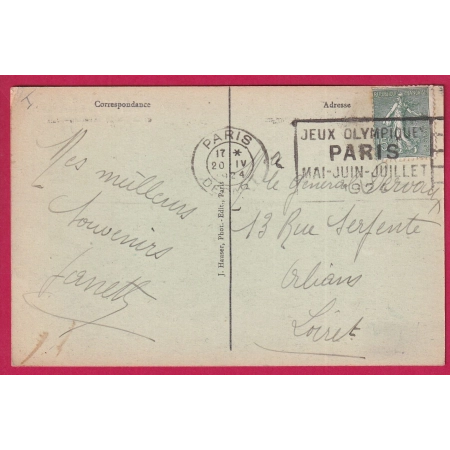 Correspondance
Adresse
PARIS
17 *
20 IV
24
DEPART
JEUX OLYMPIQUES
PARIS
MAI-JUIN-JUILLET
Mes meilleurs
Souvenirs
J. Hauser, Phot.-Edit., Paris
le général
13 Rue Serpente
Orléans
Loiret